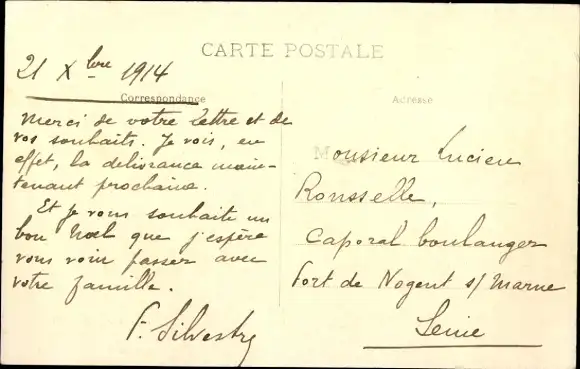 CARTE POSTALE
21 Xbre 1914
Correspondance
Adresse
Merci de votre lettre et de
vos souhaits. Je vois, en
effet, la delivrance main-
tenant prochaine.
Et je vous souhaite un
bon Noel que j'espère
vous voir passer avec
votre famille.
F. Silvestre
Monsieur Lucien
Rousselle,
Caporal boulanger
Fort de Nogent s/ Marne
Seine